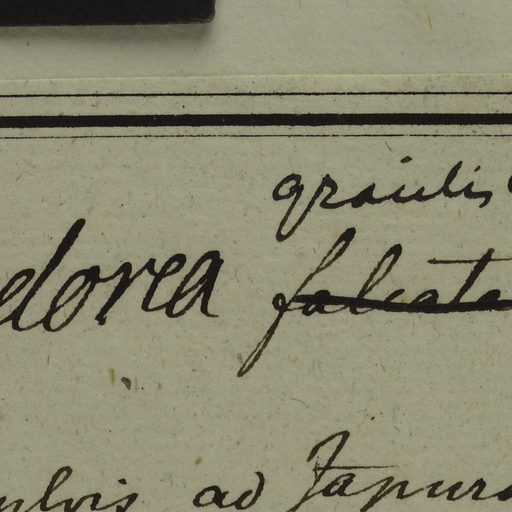 gracilis
dorea falcata
ylvis ad Japura